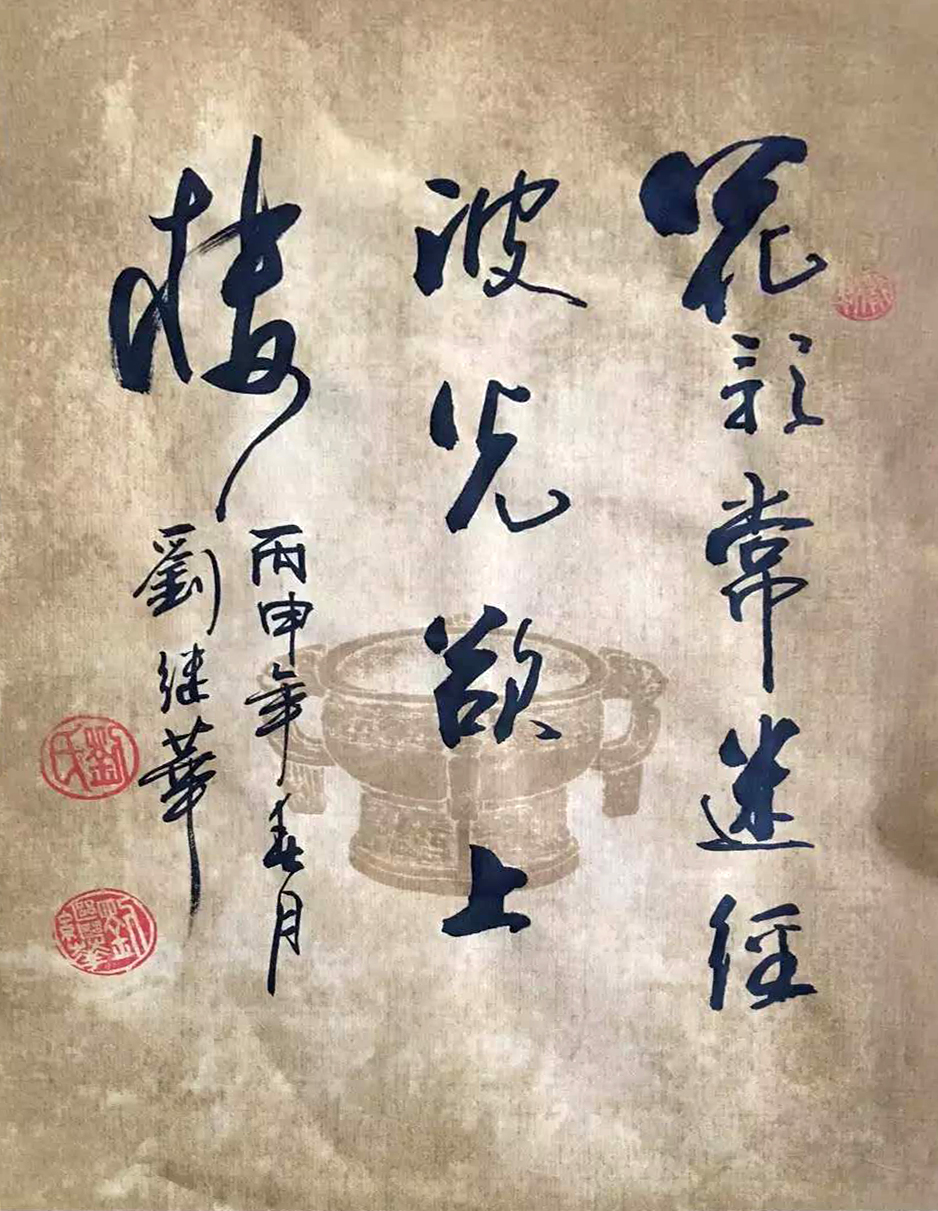 花影常迷径
波光欲上
楼
丙申年春月
劉继華
劉氏